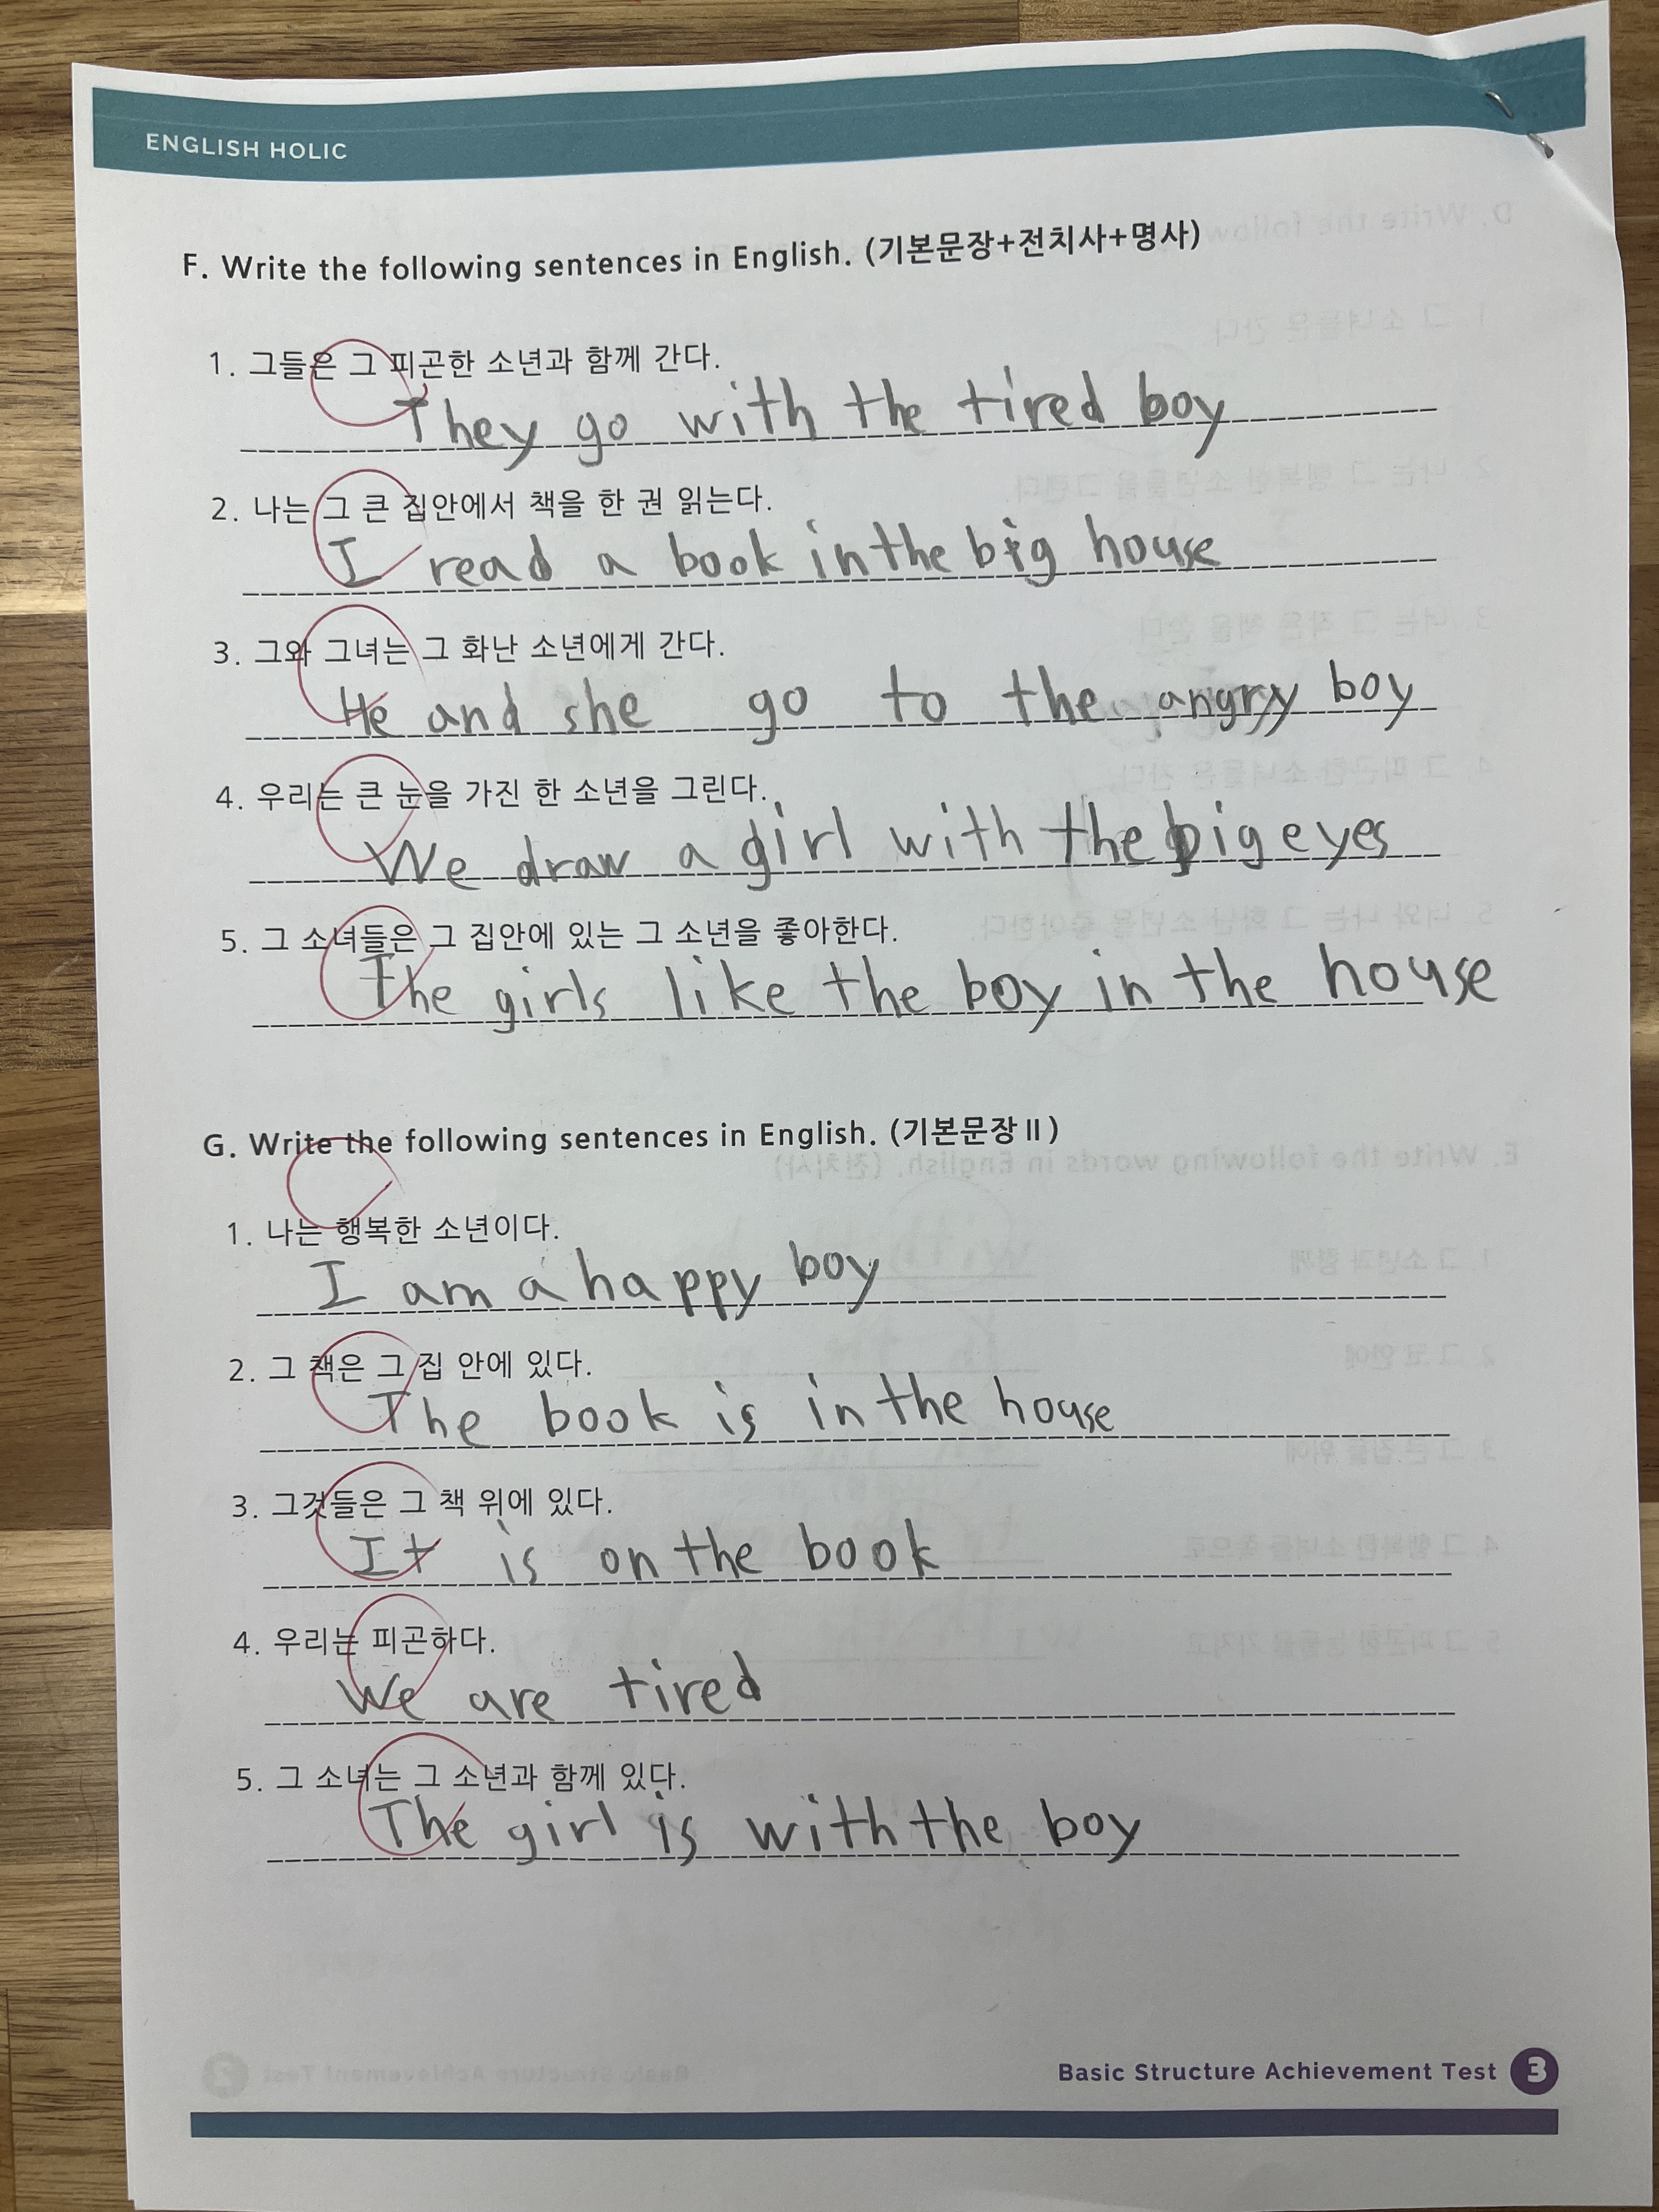 ENGLISH HOLIC
F. Write the following sentences in English. (기본문장+전치사+명사)
1. 그들은 그 피곤한 소년과 함께 간다.
They go with the tired boy
2. 나는 그 큰 집안에서 책을 한 권 읽는다.
I read a book in the big house
3. 그와 그녀는 그 화난 소년에게 간다.
He and she go to the angry boy
4. 우리는 큰 눈을 가진 한 소년을 그린다.
We draw a girl with the big eyes
5. 그 소녀들은 그 집안에 있는 그 소년을 좋아한다.
The girls like the boy in the house
G. Write the following sentences in English. (기본문장 II)
1. 나는 행복한 소년이다.
I am a happy boy
2. 그 책은 그 집 안에 있다.
The book is in the house
3. 그것들은 그 책 위에 있다.
It is on the book
4. 우리는 피곤하다.
We are tired
5. 그 소녀는 그 소년과 함께 있다.
The girl is with the boy
Basic Structure Achievement Test 3